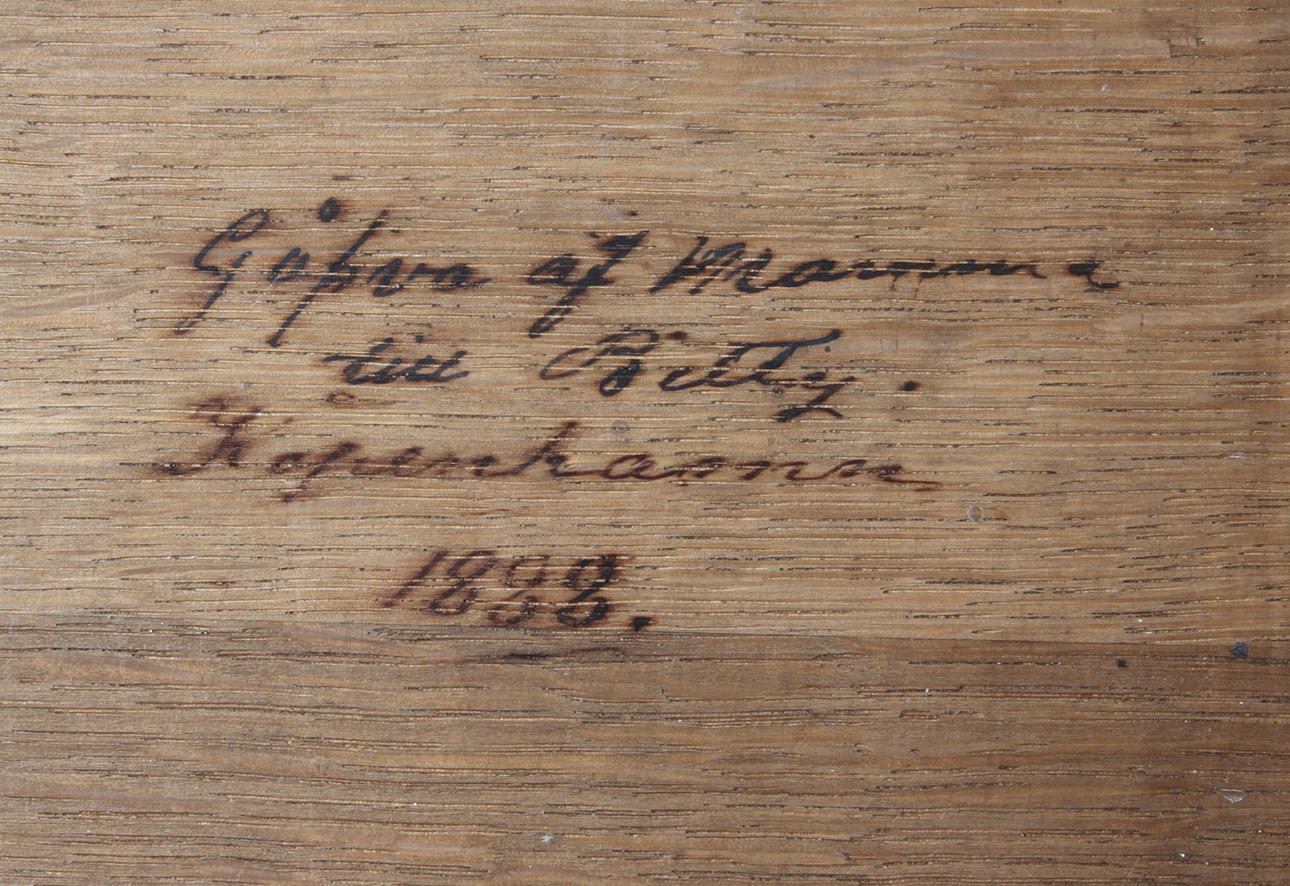 Gåfva af Mamma
till Betty.
Köpenhamn
1898.